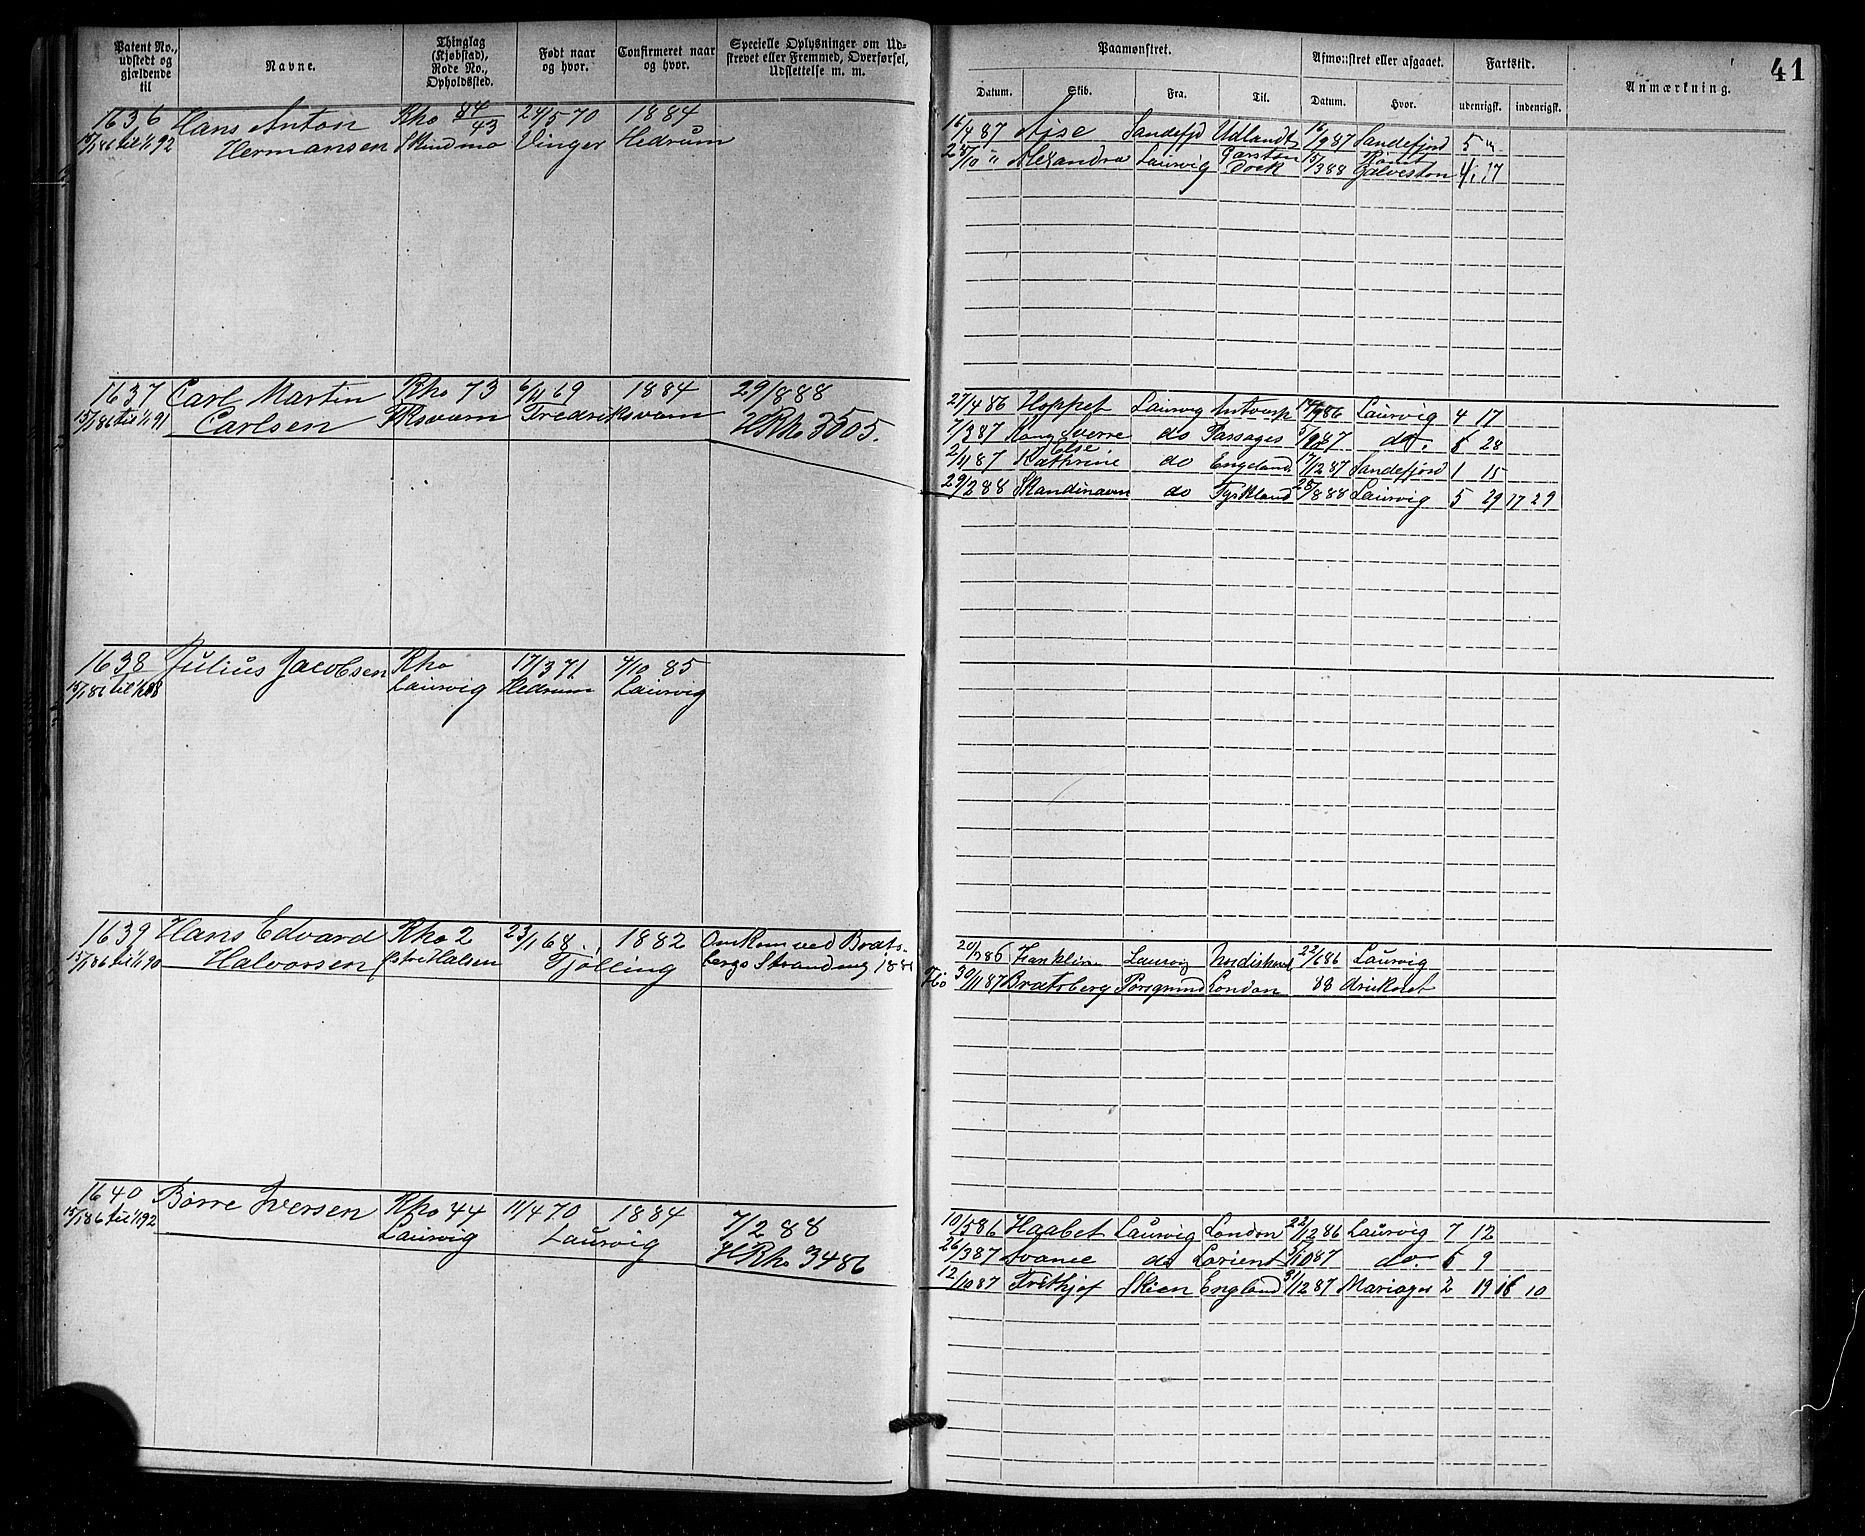 Patent No., udstedt og gjældende til
Navne.
Thinglag (Kjøbstad), Rode No., Opholdssted.
Født naar og hvor.
Confirmeret naar og hvor.
Specielle Oplysninger om Udstrevet eller Fremmed, Overførsel, Udslettelse m. m.
1636 Hans Anton Rho 84/43 24/5 70 1884
15/1 86 til 1/1 92 Hermansen Skindmo Vinger Hedrum
1637 Carl Martin Rho 73 6/11 69 1884 29/8 88
15/1 86 til 1/1 91 Carlsen Fksværn Fredriksværn HRho 3505.
1638 Julius Jacobsen Rho 17/3 71 4/10 85
15/1 86 til Laurvig Hedrum Laurvig
1639 Hans Edvard Rho 2 23/1 68 1882 Omkom ved Brats-
15/1 86 til 1/1 90 Halvorsen Østre Halsen Tjølling bergs Stranding
1640 Børre Iversen Rho 44 11/4 70 1884 7/2 88
15/1 86 til 1/1 92 Laurvig Laurvig HRho 3486
41
Paamønstret.
Afmønstret eller afgaaet.
Fartstid.
Anmærkning.
Datum. Skib. Fra. Til. Datum. Hvor. udenrigsk. indenrigsk.
16/4 87 Sandefjd Udlandt 14/9 87 Sandefjord 5 "
25/10 " Alexandra Laurvig Garston Dock 15/3 88 Rømt Galveston 4 17
27/4 86 Hoppet Laurvig Antverp 86 Laurvig 4 17
7/3 87 Kong Sverre do Passages 5/9 87 do. 6 28
2/11 87 Else Kathrine do England 17/12 87 Sandefjord 1 15
29/2 88 Skandinavn do Tyskland 28/8 88 Laurvig 5 29 17 29
20/3 86 Franklin Laurvig 22/6 86 Laurvig
30/11 87 Bratsberg Porsgrund London 88 druknet
10/5 86 Haabet Laurvig London 22/12 86 Laurvig 7 12
26/3 87 Avance do Lorient 5/10 87 do. 6 9
12/10 87 Frithjof Skien England 31/12 87 Mariager 2 19 16 10